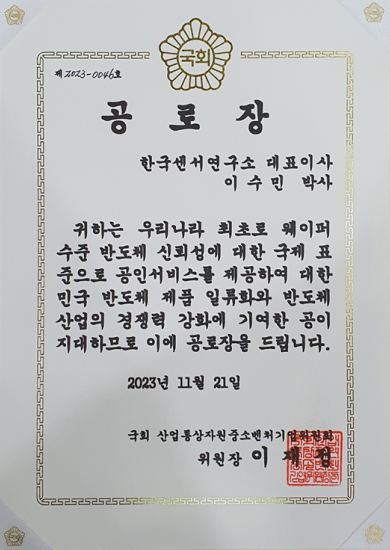 국회
제2023-0046호
공로장
한국센서연구소 대표이사
이수민 박사
귀하는 우리나라 최초로 웨이퍼
수준 반도체 신뢰성에 대한 국제 표
준으로 공인서비스를 제공하여 대한
민국 반도체 제품 일류화와 반도체
산업의 경쟁력 강화에 기여한 공이
지대하므로 이에 공로장을 드립니다.
2023년 11월 21일
국회 산업통상자원중소벤처기업위원회
위원장 이재정